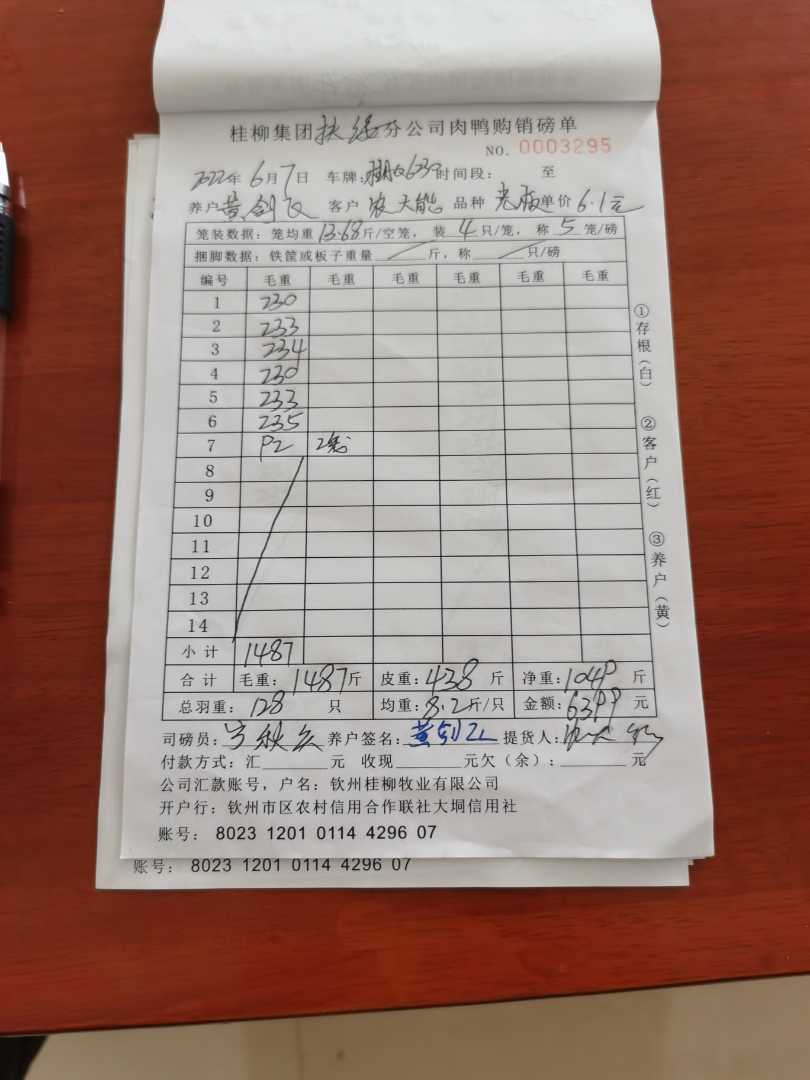 桂柳集团扶绥分公司肉鸭购销磅单
NO. 0003295
2022年6月7日 车牌: 630 时间段: 至
养户 黄剑飞 客户 农大能 品种 单价 6.1元
笼装数据: 笼均重 13.68 斤/空笼, 装 4 只/笼, 称 5 笼/磅
捆脚数据: 铁筐或板子重量 / 斤, 称 / 只/磅
编号 毛重 毛重 毛重 毛重 毛重 毛重
1 230
2 233
3 234
4 230
5 233
6 235
7 92 2笼
8
9
10
11
12
13
14
小计 1487
合计 毛重: 1487斤 皮重: 438 斤 净重: 1049 斤
总羽重: 128 只 均重: 8.2斤/只 金额: 6399 元
司磅员: 养户签名: 黄剑飞 提货人:
付款方式: 汇 元 收现 元欠(余): 元
公司汇款账号, 户名: 钦州桂柳牧业有限公司
开户行: 钦州市区农村信用合作联社大垌信用社
账号: 8023 1201 0114 4296 07
账号: 8023 1201 0114 4296 07
①存根(白)
②客户(红)
③养户(黄)